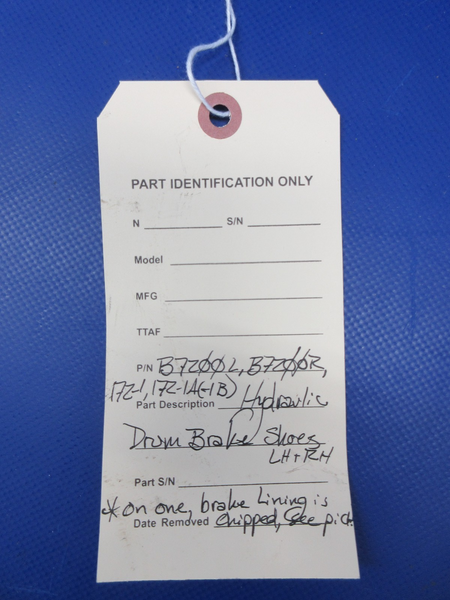 PART IDENTIFICATION ONLY
N S/N
Model
MFG
TTAF
P/N B7200L, B7200R,
172-1, 172-1A(-1B)
Part Description Hydraulic
Drum Brake Shoes
LH + RH
Part S/N
* on one, brake Lining is
Date Removed chipped, See pict.